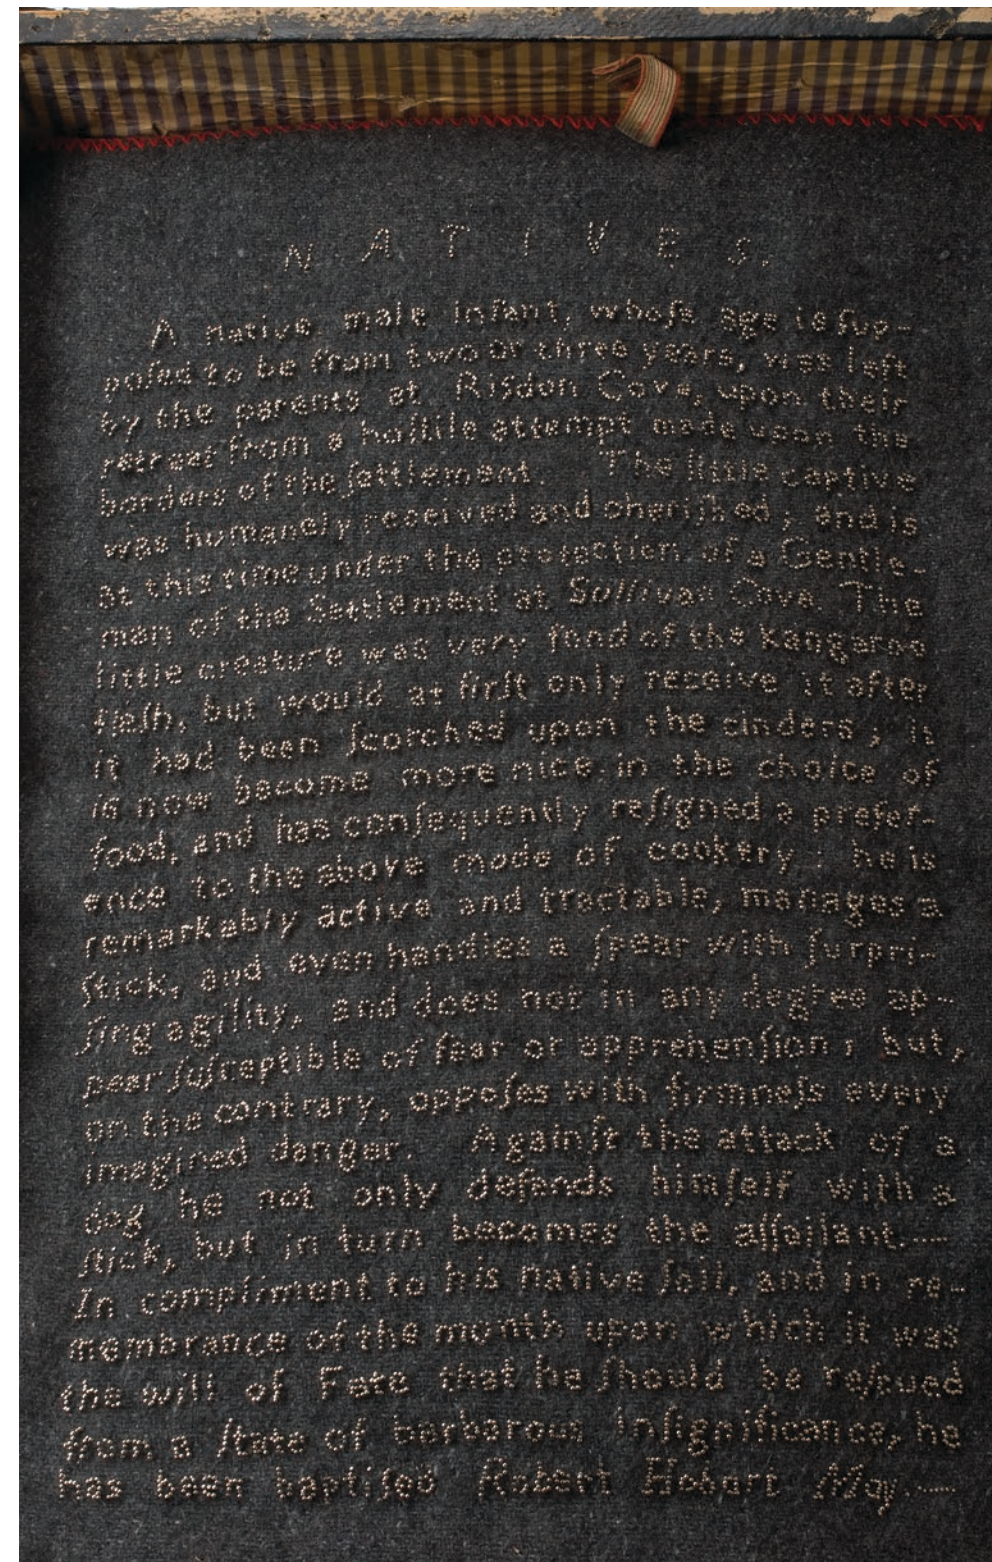 NATIVES.
A native male infant, whoſe age is ſup-
poſed to be from two or three years, was left
by the parents at Risdon Cove, upon their
retreat from a hoſtile attempt made upon the
borders of the ſettlement. The little captive
was humanely received and cheriſhed, and is
at this time under the protection of a Gentle-
man of the Settlement at Sullivan Cove. The
little creature was very fond of the kangaroo
fleſh, but would at firſt only receive it after
it had been ſcorched upon the cinders; it
is now become more nice in the choice of
food, and has conſequently reſigned a prefer-
ence to the above mode of cookery: he is
remarkably active and tractable, manages a
ſtick, and even handles a ſpear with ſurpri-
ſing agility, and does not in any degree ap-
pear ſuſceptible of fear or apprehenſion; but,
on the contrary, oppoſes with firmneſs every
imagined danger. Againſt the attack of a
dog he not only defends himſelf with a
ſtick, but in turn becomes the aſſailant.—
In compliment to his native ſoil, and in re-
membrance of the month upon which it was
the will of Fate that he ſhould be reſcued
from a ſtate of barbarous inſignificance, he
has been baptiſed Robert Hobart May.—